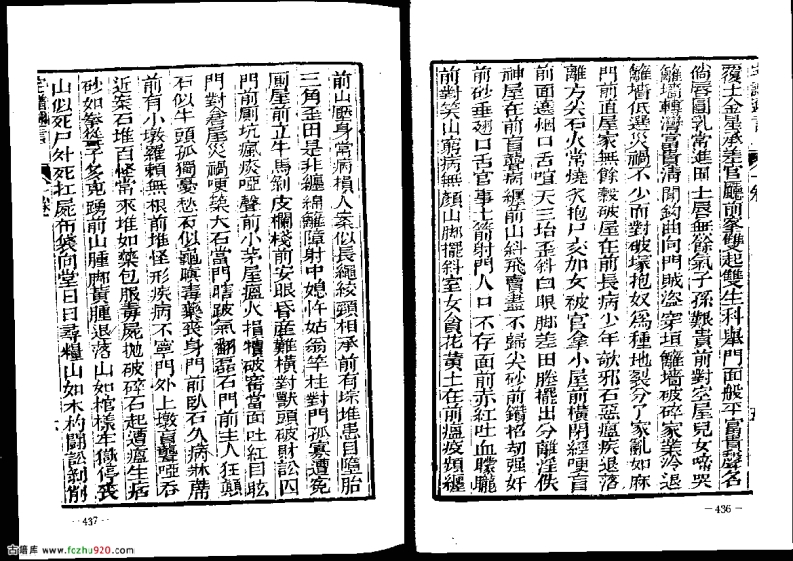 覆土金星承差官廳前峯雙起雙生科舉門面般平富貴聲名
倘唇圓乳常進田土唇無餘氣子孫艱貴前對空屋兒女啼哭
籬墻轉灣富貴清閒鈎曲向門賊盜穿垣籬墻破碎家業冷退
籬墻低遮災禍不少而對破塚抱奴為種地裂分了家亂如麻
門前直屋家無餘穀破屋在前長病少年欹邪石惡瘟疾退落
離方尖石火常燒衣抱尸交加女被官拿小屋前橫閉經哽盲
前面邊烟口舌喧天三坮歪斜白眼脚差田塍擺出分離淫佚
神屋在前盲聾病纏前山斜飛賣盡不歸尖砂前鑽招劫强奸
前砂垂翅口舌官事土箭射門人口不存面前赤紅吐血朦朧
前對笑山窮病無顏山脚擺斜室女貪花黄土在前瘟疫類纏
—436—
前山壓身常病損人案似長繩絞頸相承前有垛堆患目墮胎
三角歪田是非纏綿離障射中媳忤姑翁竿柱對門孤寡遭寃
廁屋前立牛馬剝皮欄棧前安眼昏產難橫對獸頭破財訟囚
門前厠坑瘋痰啞聲前小茅屋瘟火損犢破窰當面吐紅目眩
門對急屋災禍哽築大石當門瞎跛氣翻磊石門前主人狂顛
石似牛頭孤獨憂愁石似龜嗔毒藥喪身門前臥石久病牀蓆
前有小墩羅賴無根前堆怪形疾病不寧門外上墩盲聾啞吞
近案石堆百怪常來堆如藥包服毒屍拋破碎石起遭瘟生病
砂如拳搥子多兇踴前山腫脚黃腫退落山如棺樣牢獄停喪
山似死尸外死扛屍布袋向堂日日尋糧山如木杓鬪訟剝削
437
古籍库 www.fczhu920.com